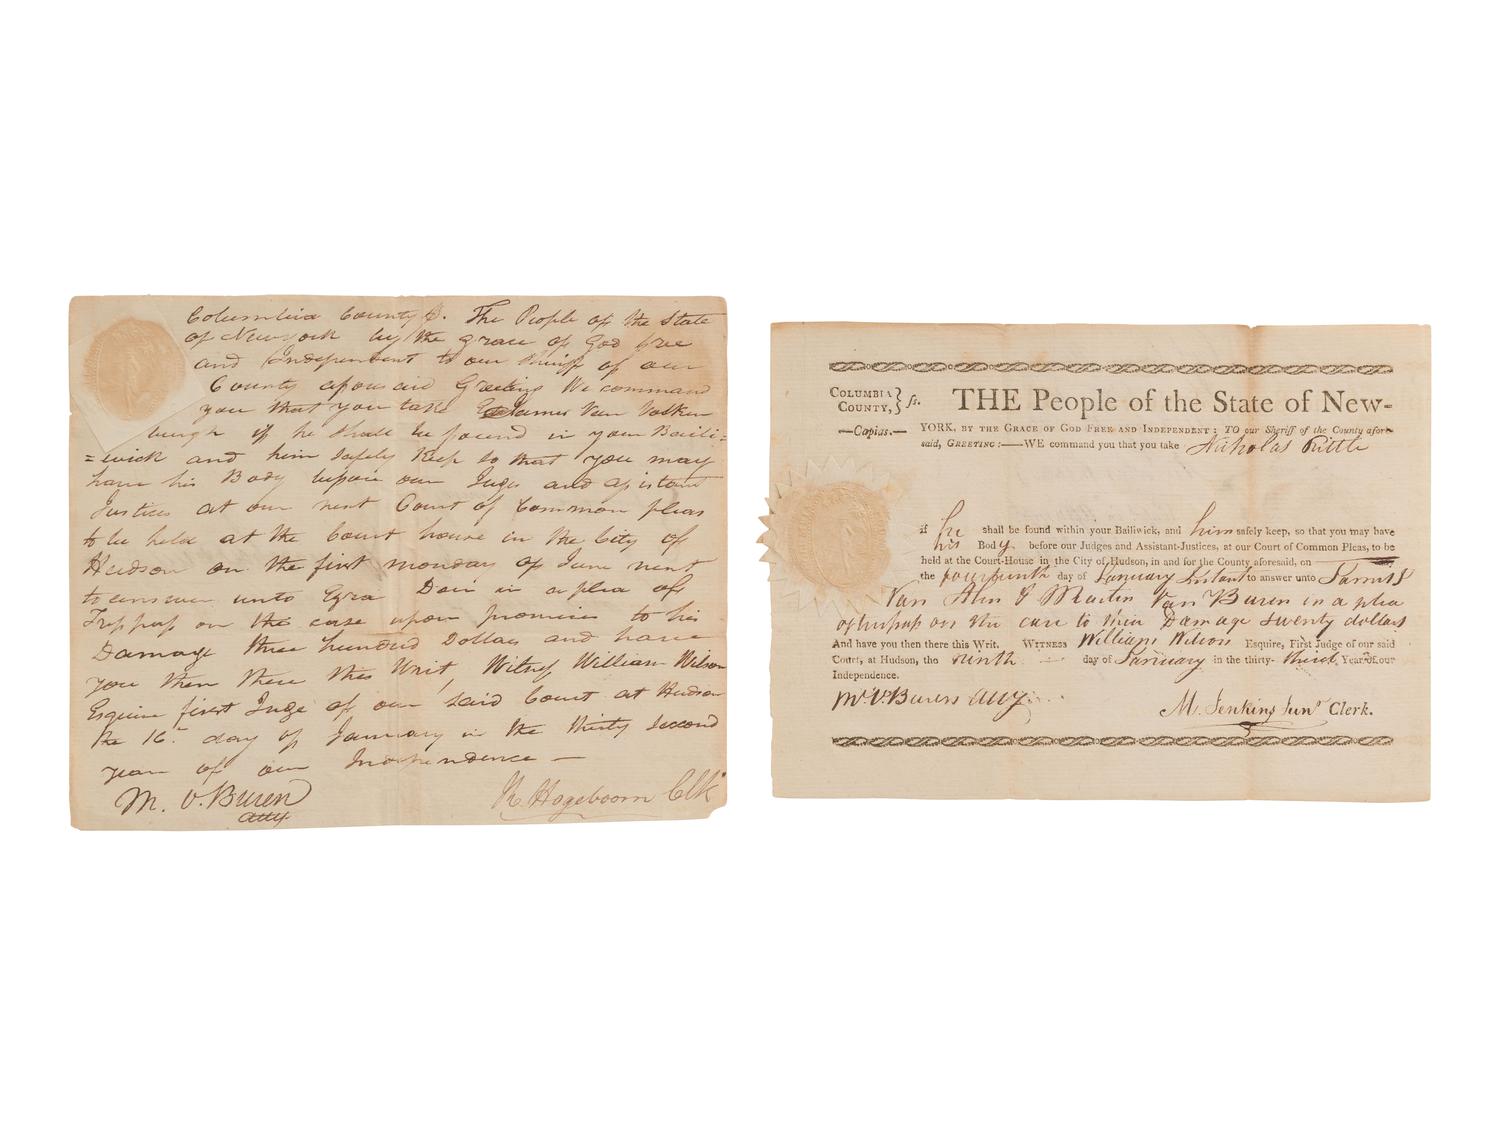 Columbia County ss. The People of the State
of New york by the grace of God free
and Independent to our Sheriff of our
County aforesaid Greeting We command
you that you take James Van Valken
burgh if he shall be found in your Baili=
=wick and him safely keep so that you may
have his Body before our Juges and assistant
Justices at our next Court of Common pleas
to be held at the Court house in the City of
Hudson on the first monday of June next
to answer unto Ezra Dain in a plea of
Trespass on the case upon promises to his
Damage three hundred Dollars and have
you then there this Writ, Witness William Wilson
Esquire first Juge of our said Court at Hudson
the 16th day of January in the thirty second
year of our Independence —
M. V. Buren
atty
K. Hogeboom Clk
COLUMBIA COUNTY, } ss.
—Capias.—
THE People of the State of New-
YORK, BY THE GRACE OF GOD FREE AND INDEPENDENT : TO our Sheriff of the County afore-
said, GREETING :——WE command you that you take Nicholas
if he shall be found within your Bailiwick, and him safely keep, so that you may have
his Body before our Judges and Assistant-Justices, at our Court of Common Pleas, to be
held at the Court-House in the City of Hudson, in and for the County aforesaid, on
the fourteenth day of January Instant to answer unto James I
Van Alen & Martin Van Buren in a plea
of trespass on the case to their Damage twenty dollars
And have you then there this Writ. WITNESS William Wilson Esquire, First Judge of our said
Court, at Hudson, the ninth day of January in the thirty- third Year of our
Independence.
M. V. Buren atty
M. Jenkins Junr Clerk.